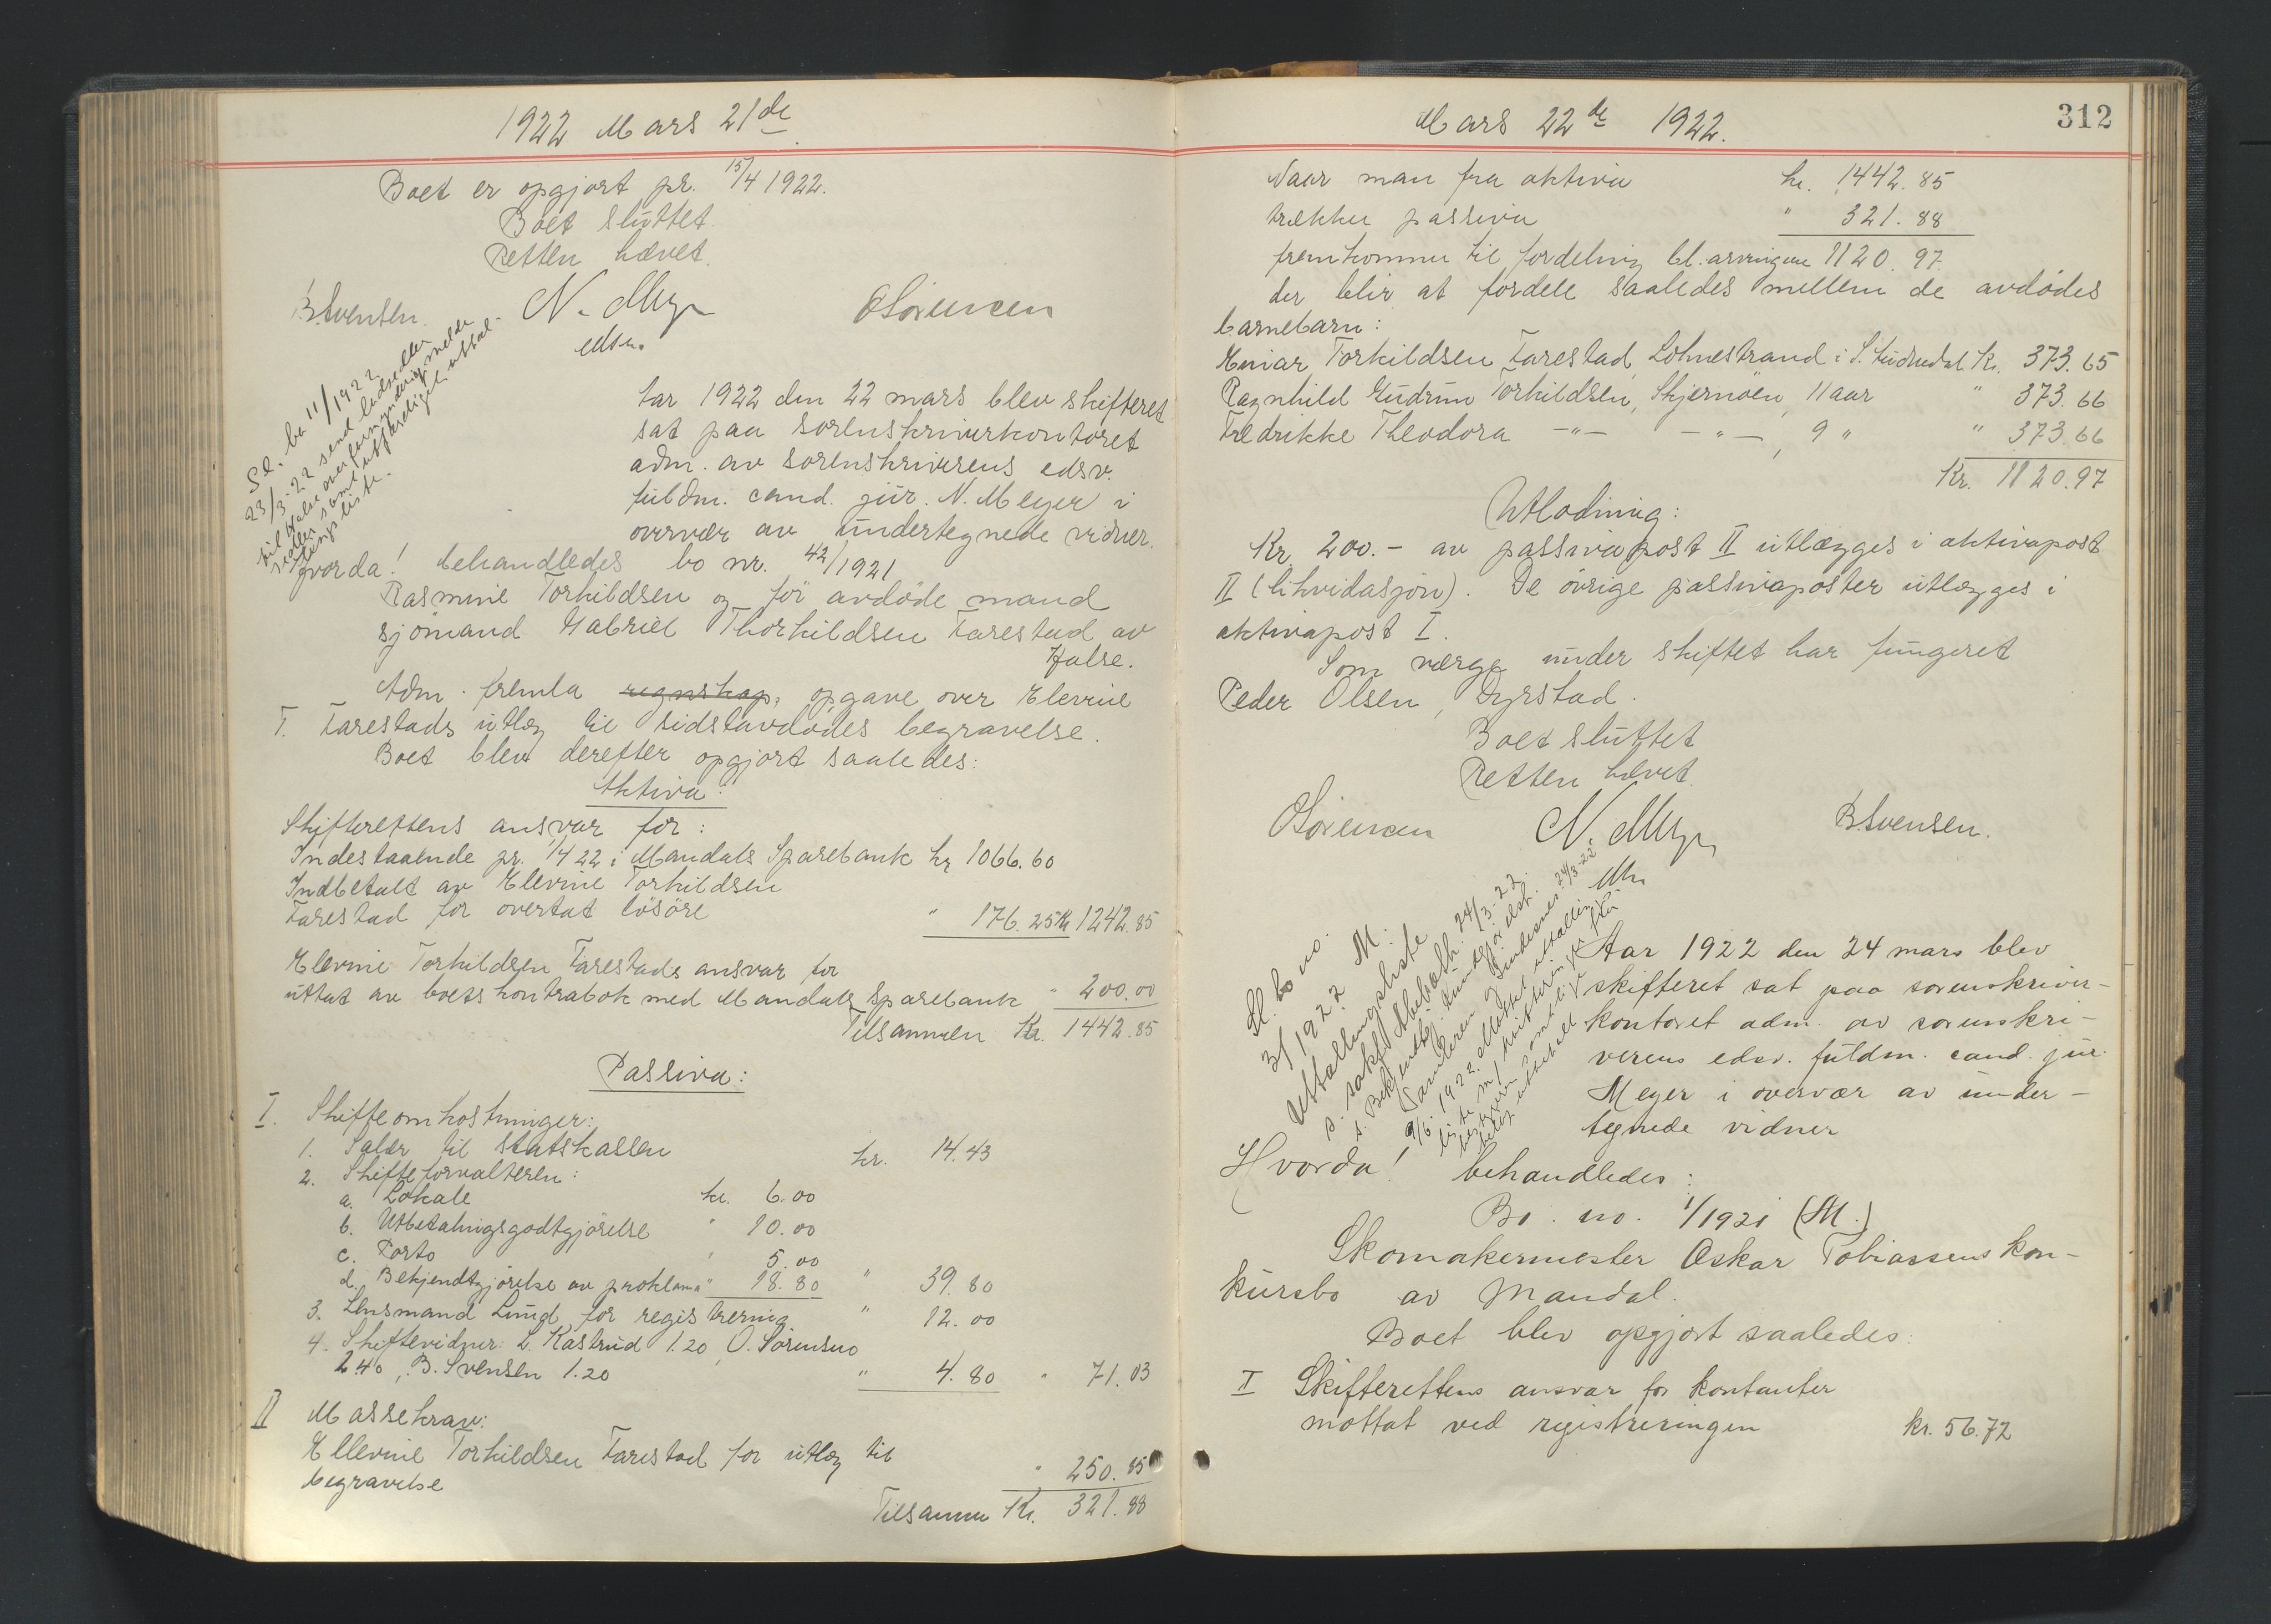 1922 Mars 21de
Boet er opgjort pr. 15/4 1922.
Boet sluttet.
Retten hævet.
B. Svensen. N. Meyer OSörensen
edsv.
Aar 1922 den 22 mars blev skifteret
sat paa sorenskriverkontoret
adm. av sorenskriverens edsv.
fuldm. cand. jur. N. Meyer i
overvær av undertegnede vidner.
Hvorda! behandledes bo nr. 42/1921
Rasmine Torkildsen og før avdøde mand
sjömand Gabriel Thorkildsen Farestad av
Halse.
Adm. fremla regnskap, opgave over Elevine
T. Farestads utlæg til sidstavdødes begravelse.
Boet blev derefter opgjort saaledes:
Aktiva:
Skifterettens ansvar for:
Indestaaende pr. 1/4 22 i Mandals Sparebank kr 1066.60
Indbetalt av Elevine Torkildsen
Farestad for overtat lösöre " 176.25 Kr 1242.85
Elevine Torkildsen Farestads ansvar for
uttat av boets kontrabok med Mandals Sparebank " 200.00
Tilsammen Kr. 1442.85
Passiva:
I. Skifteomkostninger:
1. Salær til statskassen kr. 14.43
2. Skifteforvalteren:
a. Lokale kr. 6.00
b. Utbetalingsgodtgjörelse " 10.00
c. Porto " 5.00
d. Bekjendtgjörelse av proklama " 18.80 " 39.80
3. Lensmand Lund, for registrering " 12.00
4. Skiftevidner: L. Kastrud 1.20, O. Sörensen
2.40, B. Svensen 1.20 " 4.80 " 71.03
II Massekrav:
Ellevine Torkildsen Farestad for utlæg til
begravelse " 250.85
Tilsammen Kr. 321.88
Mars 22de 1922.
312
Naar man fra aktiva kr. 1442.85
trækker passiva " 321.88
fremkommer til fordeling bl. arvingene 1120.97
der blir at fordele saaledes mellem de avdödes
barnebarn:
Einar Torkildsen Farestad, Lohnestrand i S. Audnedal Kr. 373.65
Ragnhild Gudrun Torkildsen, Skjernöen, 11 aar " 373.66
Fredrikke Theodora —"— —"—, 9 " " 373.66
Kr. 1120.97
Utlodning:
Kr. 200.- av passivapost II utlægges i aktivapost
II (likvidasjon). De övrige passivaposter utlægges i
aktivapost I.
Som værge under skiftet har fungeret
Peder Olsen, Dyrstad.
Boet sluttet
Retten hævet.
OSörensen N. Meyer B. Svensen.
Aar 1922 den 24 mars blev
skifteret sat paa sorenskriver-
kontoret adm. av sorenskri-
verens edsv. fuldm. cand. jur.
Meyer i overvær av under-
tegnede vidner
Hvorda! behandledes:
Bo. no. 1/1921 (M.)
Skomakermester Oskar Tobiassens kon-
kursbo av Mandal.
Boet blev opgjort saaledes:
I Skifterettens ansvar for kontanter
mottat ved registreringen kr. 56.72